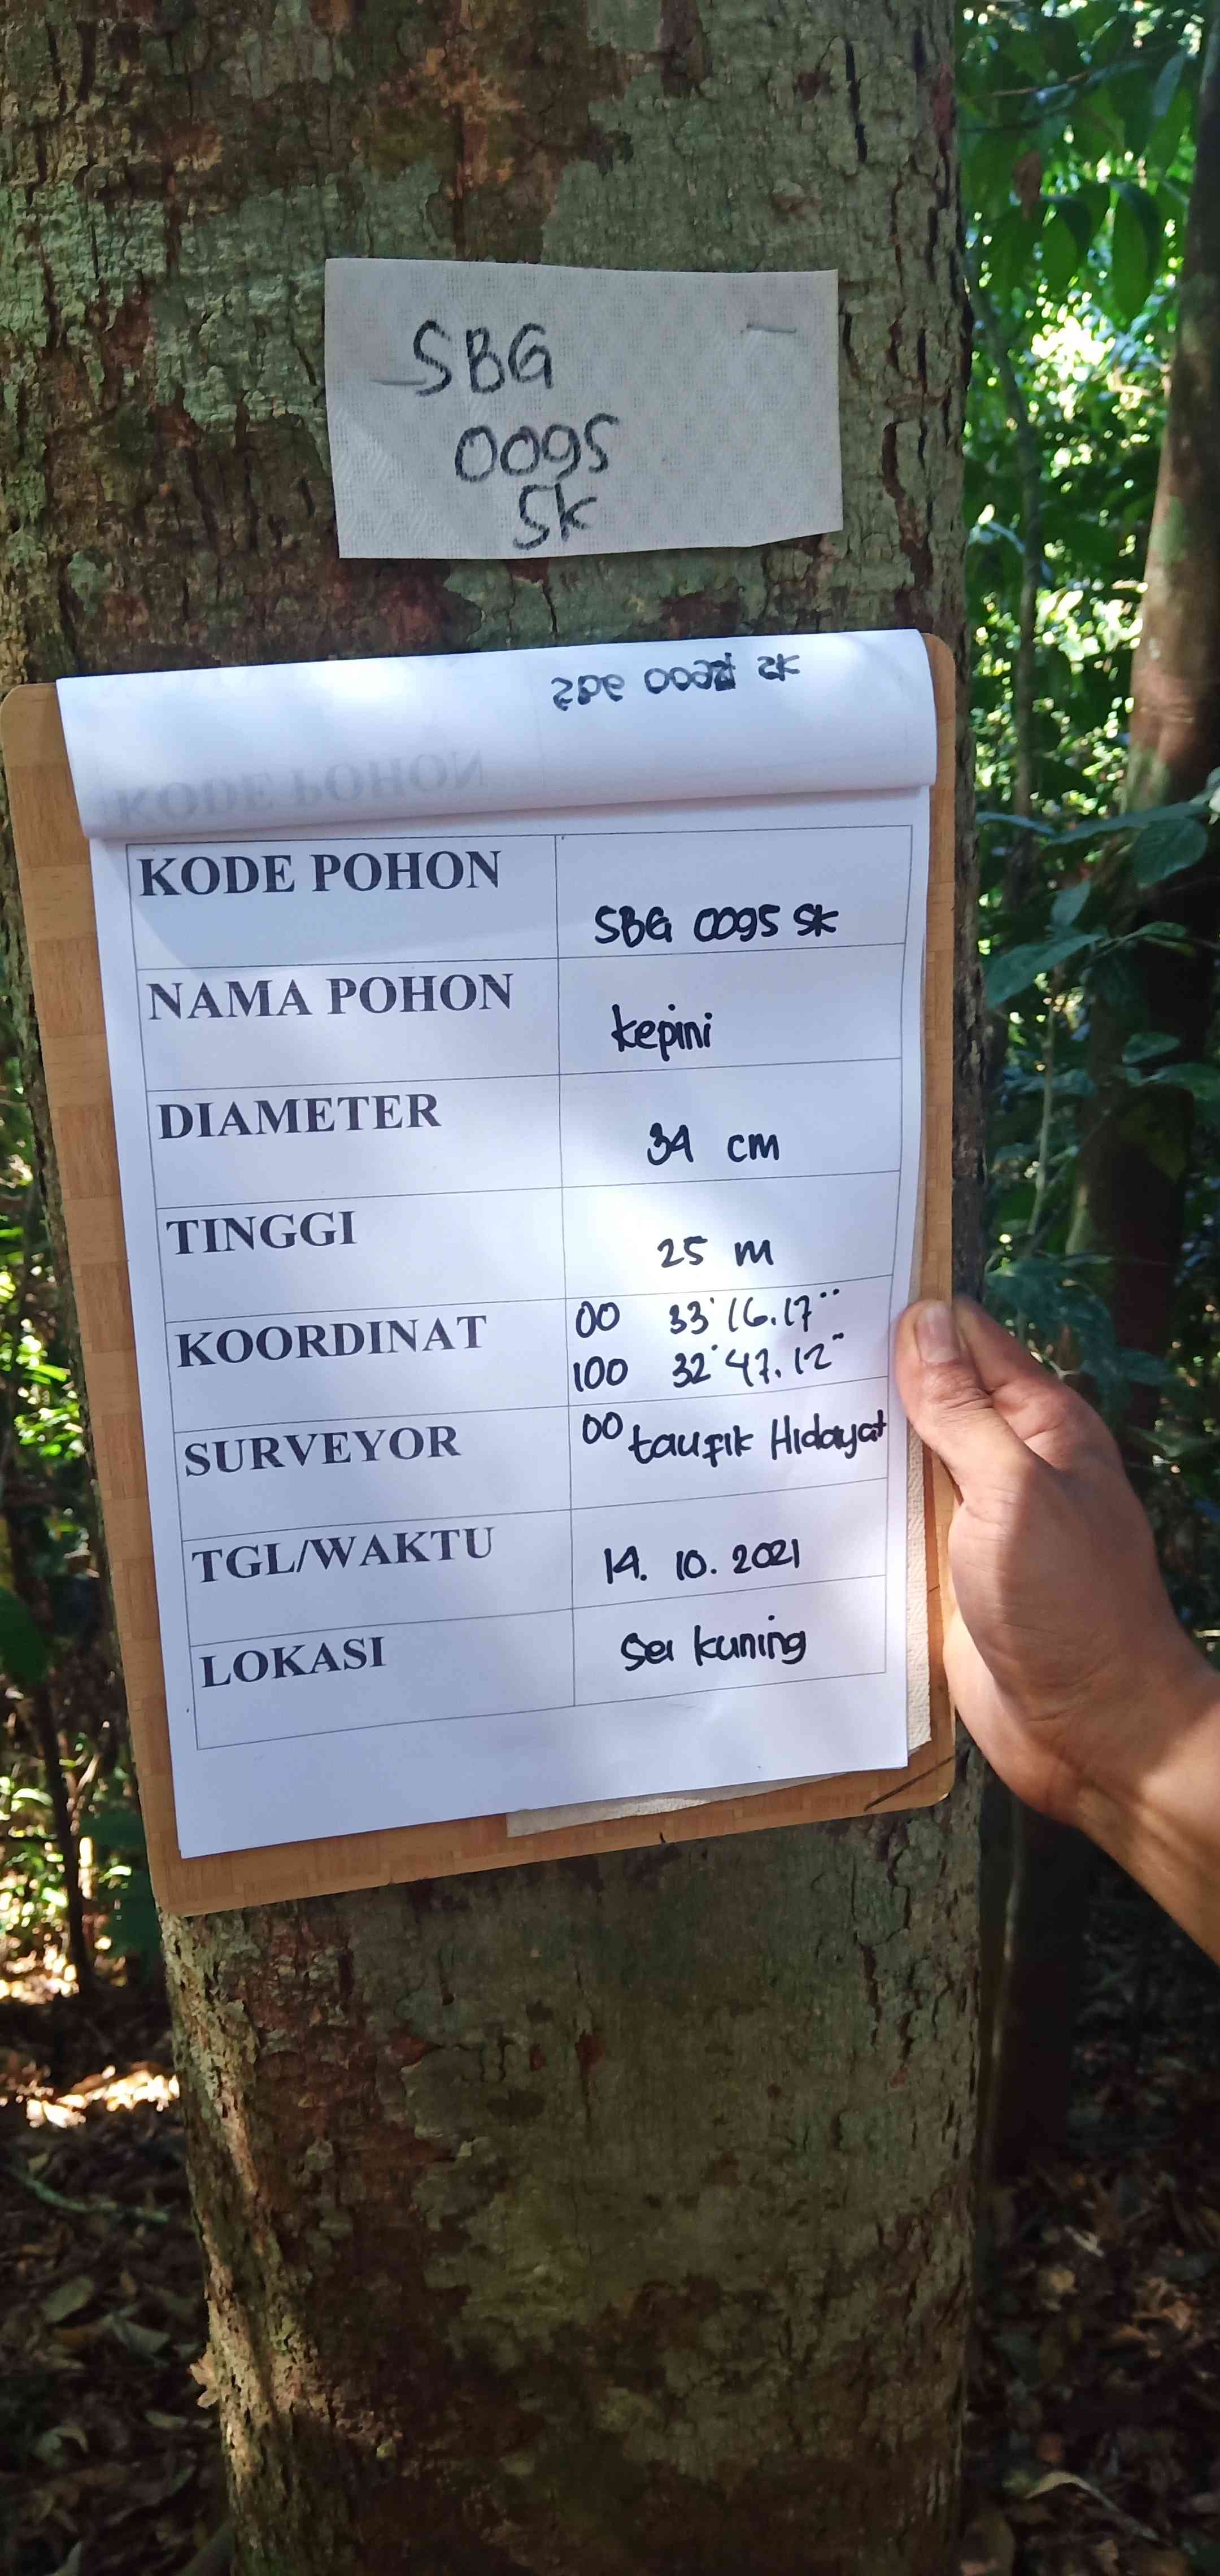 SBG
0095
SK
KODE POHON
SBG 0095 SK
NAMA POHON
kepini
DIAMETER
34 cm
TINGGI
25 m
KOORDINAT
00 33' 16.17"
100 32' 47.12"
SURVEYOR
00 taufik Hidayat
TGL/WAKTU
14. 10. 2021
LOKASI
Sei kuning